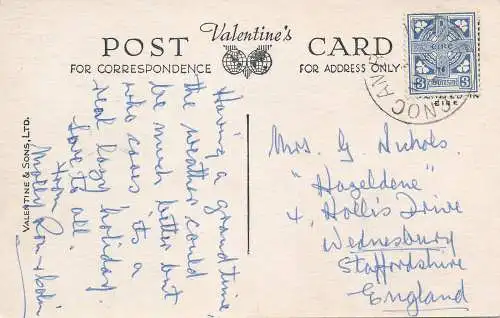 Valentine's
POST CARD
FOR CORRESPONDENCE
FOR ADDRESS ONLY
VALENTINE & SONS, LTD.
Having a grand time
the weather could
be much better but
who cares it's a
real lazy holiday.
Love to all.
from
Molly Ron & Colin
Mrs. G. Nichols
"Hazeldene"
4, Hollis Drive
Wednesbury
Staffordshire
England
ÉIRE
3 3
CNOC AN
IN
EIRE